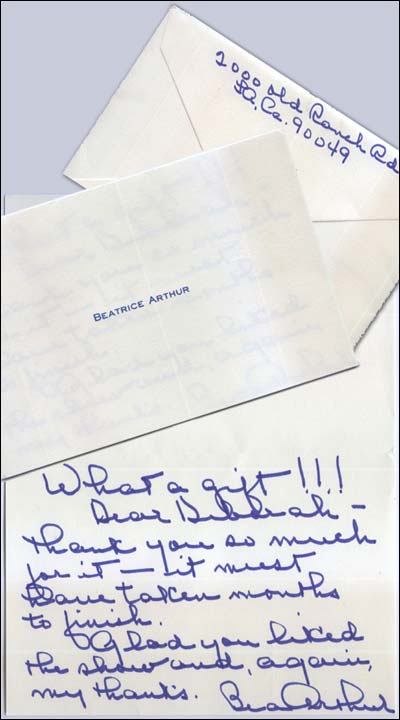 2000 Old Ranch Rd
L.A. Ca. 90049
BEATRICE ARTHUR
What a gift!!!
Dear Deborah –
thank you so much
for it — it must
have taken months
to finish.
Glad you liked
the show and, again,
my thanks. Bea Arthur